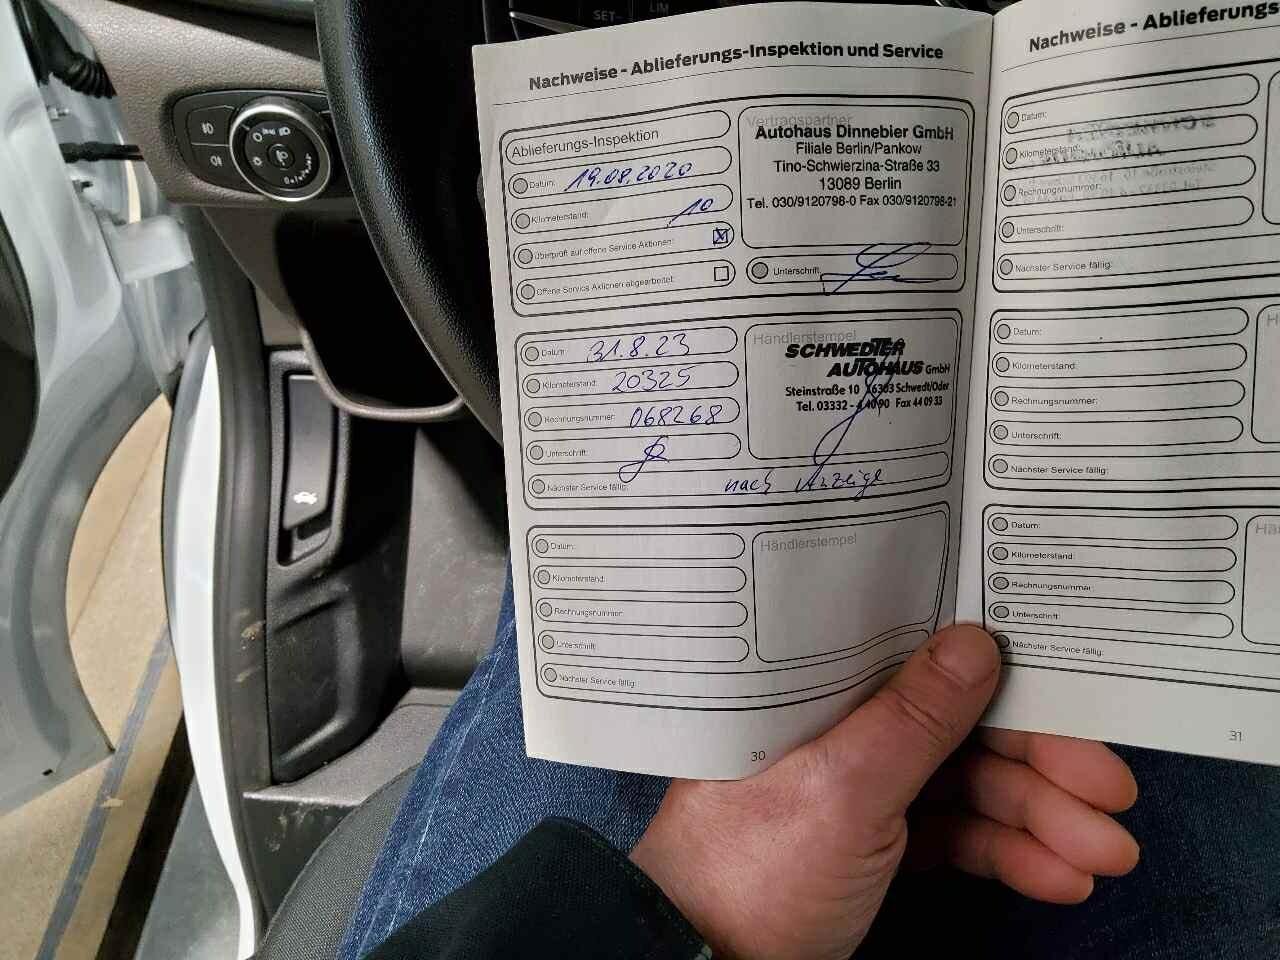 SET-
LIM
Nachweise - Ablieferungs-Inspektion und Service
Ablieferungs-Inspektion
Datum: 19.08.2020
Kilometerstand: 10
Überprüft auf offene Service Aktionen:
Offene Service Aktionen abgearbeitet:
Vertragspartner
Autohaus Dinnebier GmbH
Filiale Berlin/Pankow
Tino-Schwierzina-Straße 33
13089 Berlin
Tel. 030/9120798-0 Fax 030/9120798-21
Unterschrift:
Datum: 31.8.23
Kilometerstand: 20325
Rechnungsnummer: 068268
Unterschrift:
Nächster Service fällig: nach Anzeige
Händlerstempel
SCHWEDTER
AUTOHAUS GmbH
Steinstraße 10 16303 Schwedt/Oder
Tel. 03332 - 4 40 90 Fax 44 09 33
Datum:
Kilometerstand:
Rechnungsnummer:
Unterschrift:
Nächster Service fällig:
Händlerstempel
30
Nachweise - Ablieferungs
Datum:
Kilometerstand:
Rechnungsnummer:
Unterschrift:
Nächster Service fällig:
Datum:
Kilometerstand:
Rechnungsnummer:
Unterschrift:
Nächster Service fällig:
H
Datum:
Kilometerstand:
Rechnungsnummer:
Unterschrift:
Nächster Service fällig:
Hän
31